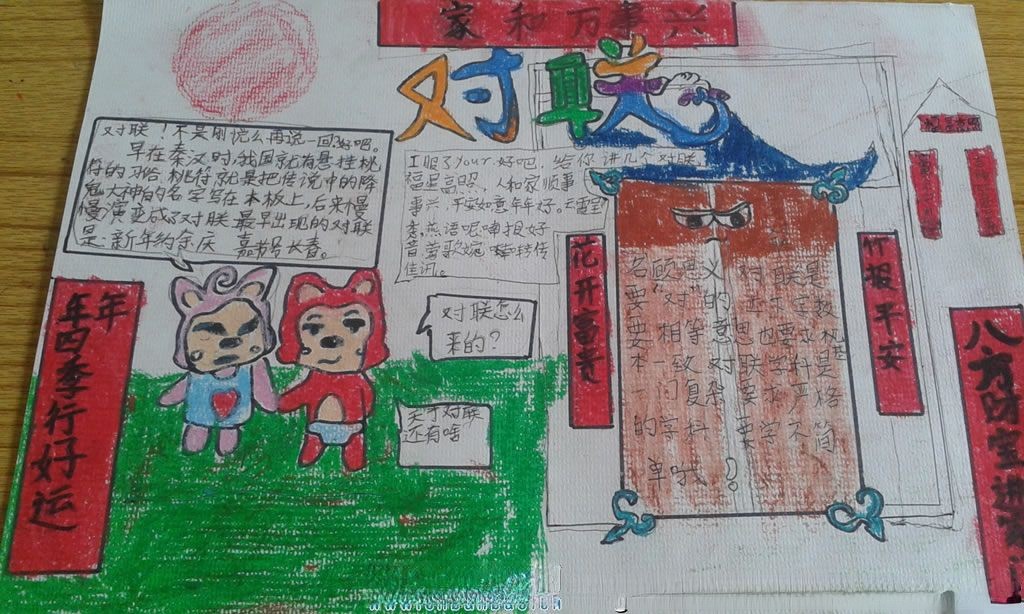 家和万事兴
对联
对联！不是刚说么再说一回好吧。
早在秦汉时，我国就有悬挂桃
符的习俗 桃符就是把传说中的降
鬼大神的名字写在木板上，后来慢
慢演变成了对联 最早出现的对联
是：新年纳余庆 嘉节号长春。
I服了Your.好吧，给你讲几个对联
福星高照、人和家顺事
事兴，平安如意年年好。
燕语呢喃报好
音莺歌婉转传
佳讯。
对联怎么
来的？
天才对联
还有啥
年年四季行好运
花开富贵
竹报平安
名顾思义 对联是
要“对”的
要相等意思也要
本一致对联学科是
一门复杂要求严格
的学科 要学不简
单哦？
八方财宝进家门